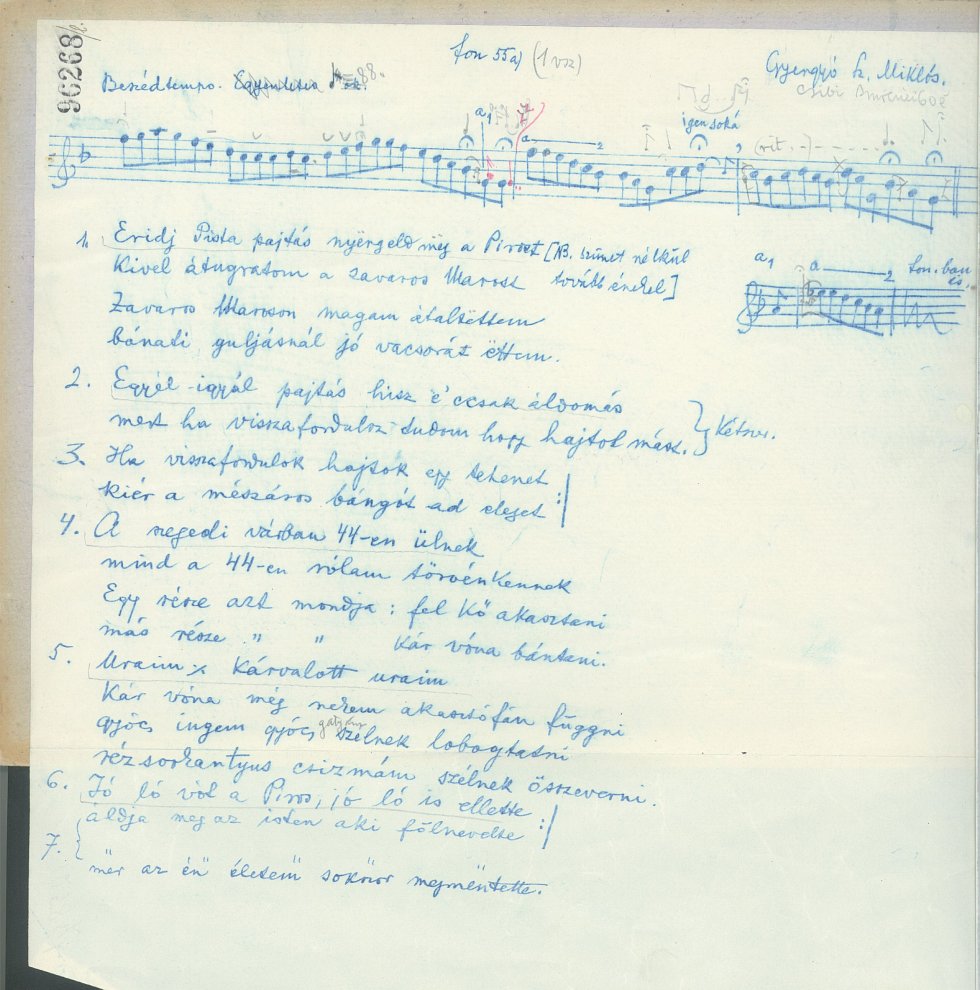 96268
fon 55a) (1 vsz)
Gyergyó Sz. Miklós.
Csibi
Beszédtempo. Egyenletes ♪=88.
a1
igen soká
a——2
(rit. - ) - - - -
1. Eridj Pista pajtás nyërgeld mëg a Pirost [NB. szünet nélkül
Kivel átugratom a zavaros Marost tovább énekel]
Zavaros Maroson magam átaltëttem
bánati guljásnál jó vacsorát ëttem.
a1 a——2 fon.-ban
is.
2. Egyél - igyál pajtás hisz e' ccsak áldomás
mert ha visszafordulsz tudom hogy hajtol mást. } Kétsor.
3. Ha visszafordulok hajtok egy tehenet
kiér a mészáros bángót ad eleget :|
4. A szegedi várban 44-en ülnek
mind a 44-en rólam törvénkennek
Egy része azt mondja : fel kő akasztani
más része " " kár vóna bántani.
5. Uraim x kárvalott uraim
Kár vóna még nekem akasztófán függni
gyócs ingem gyócs gatyám szélnek lobogtatni
rézsorkantyus csizmám szélnek összeverni.
6. Jó ló vót a Piros, jó ló is ellette :|
áldja meg az isten aki fölnevelte
7. mer az én életem sokszor megmentette.